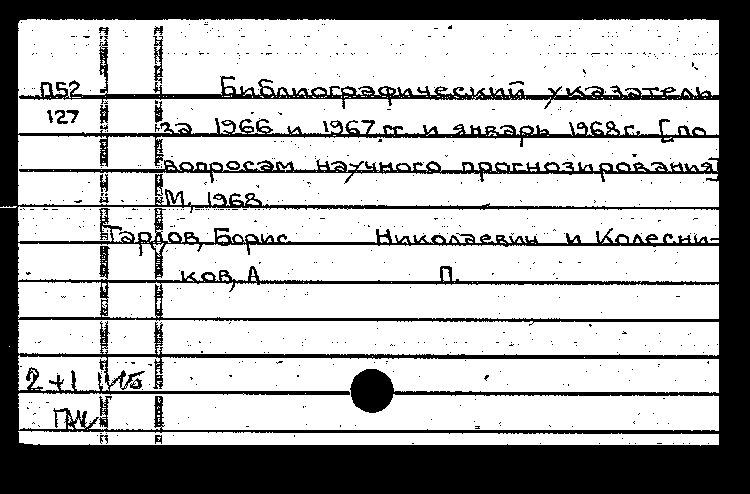 П52 Библиографический указатель
127 за 1966 и 1967 гг. и январь 1968 г. [по
вопросам научного прогнозирования]
М., 1968.
Тарлов, Борис Николаевич и Колесни-
ков, А. П.
2+1